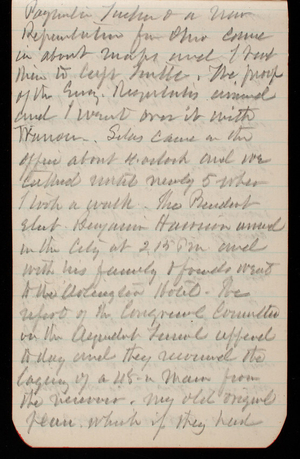 Paymaster Tucker & a new
Representative from Ohio came
in about maps and I sent
them to Capt Smith. The proof
of the Eng. Regulations arrived
and I went over it with
Hanson. Silas came in the
office about 4 oclock and we
talked until nearly 5 when
I took a walk. The President
Elect Benjamin Harrison arrived
in the City at 2 15 PM and
with his family & friends went
to the Arlington Hotel. The
report of the Congressional Committee
on the Aqueduct Tunnel appeared
to day and they recommend the
laying of a 48 in main from
the reservoir. My old original
plan which if they had